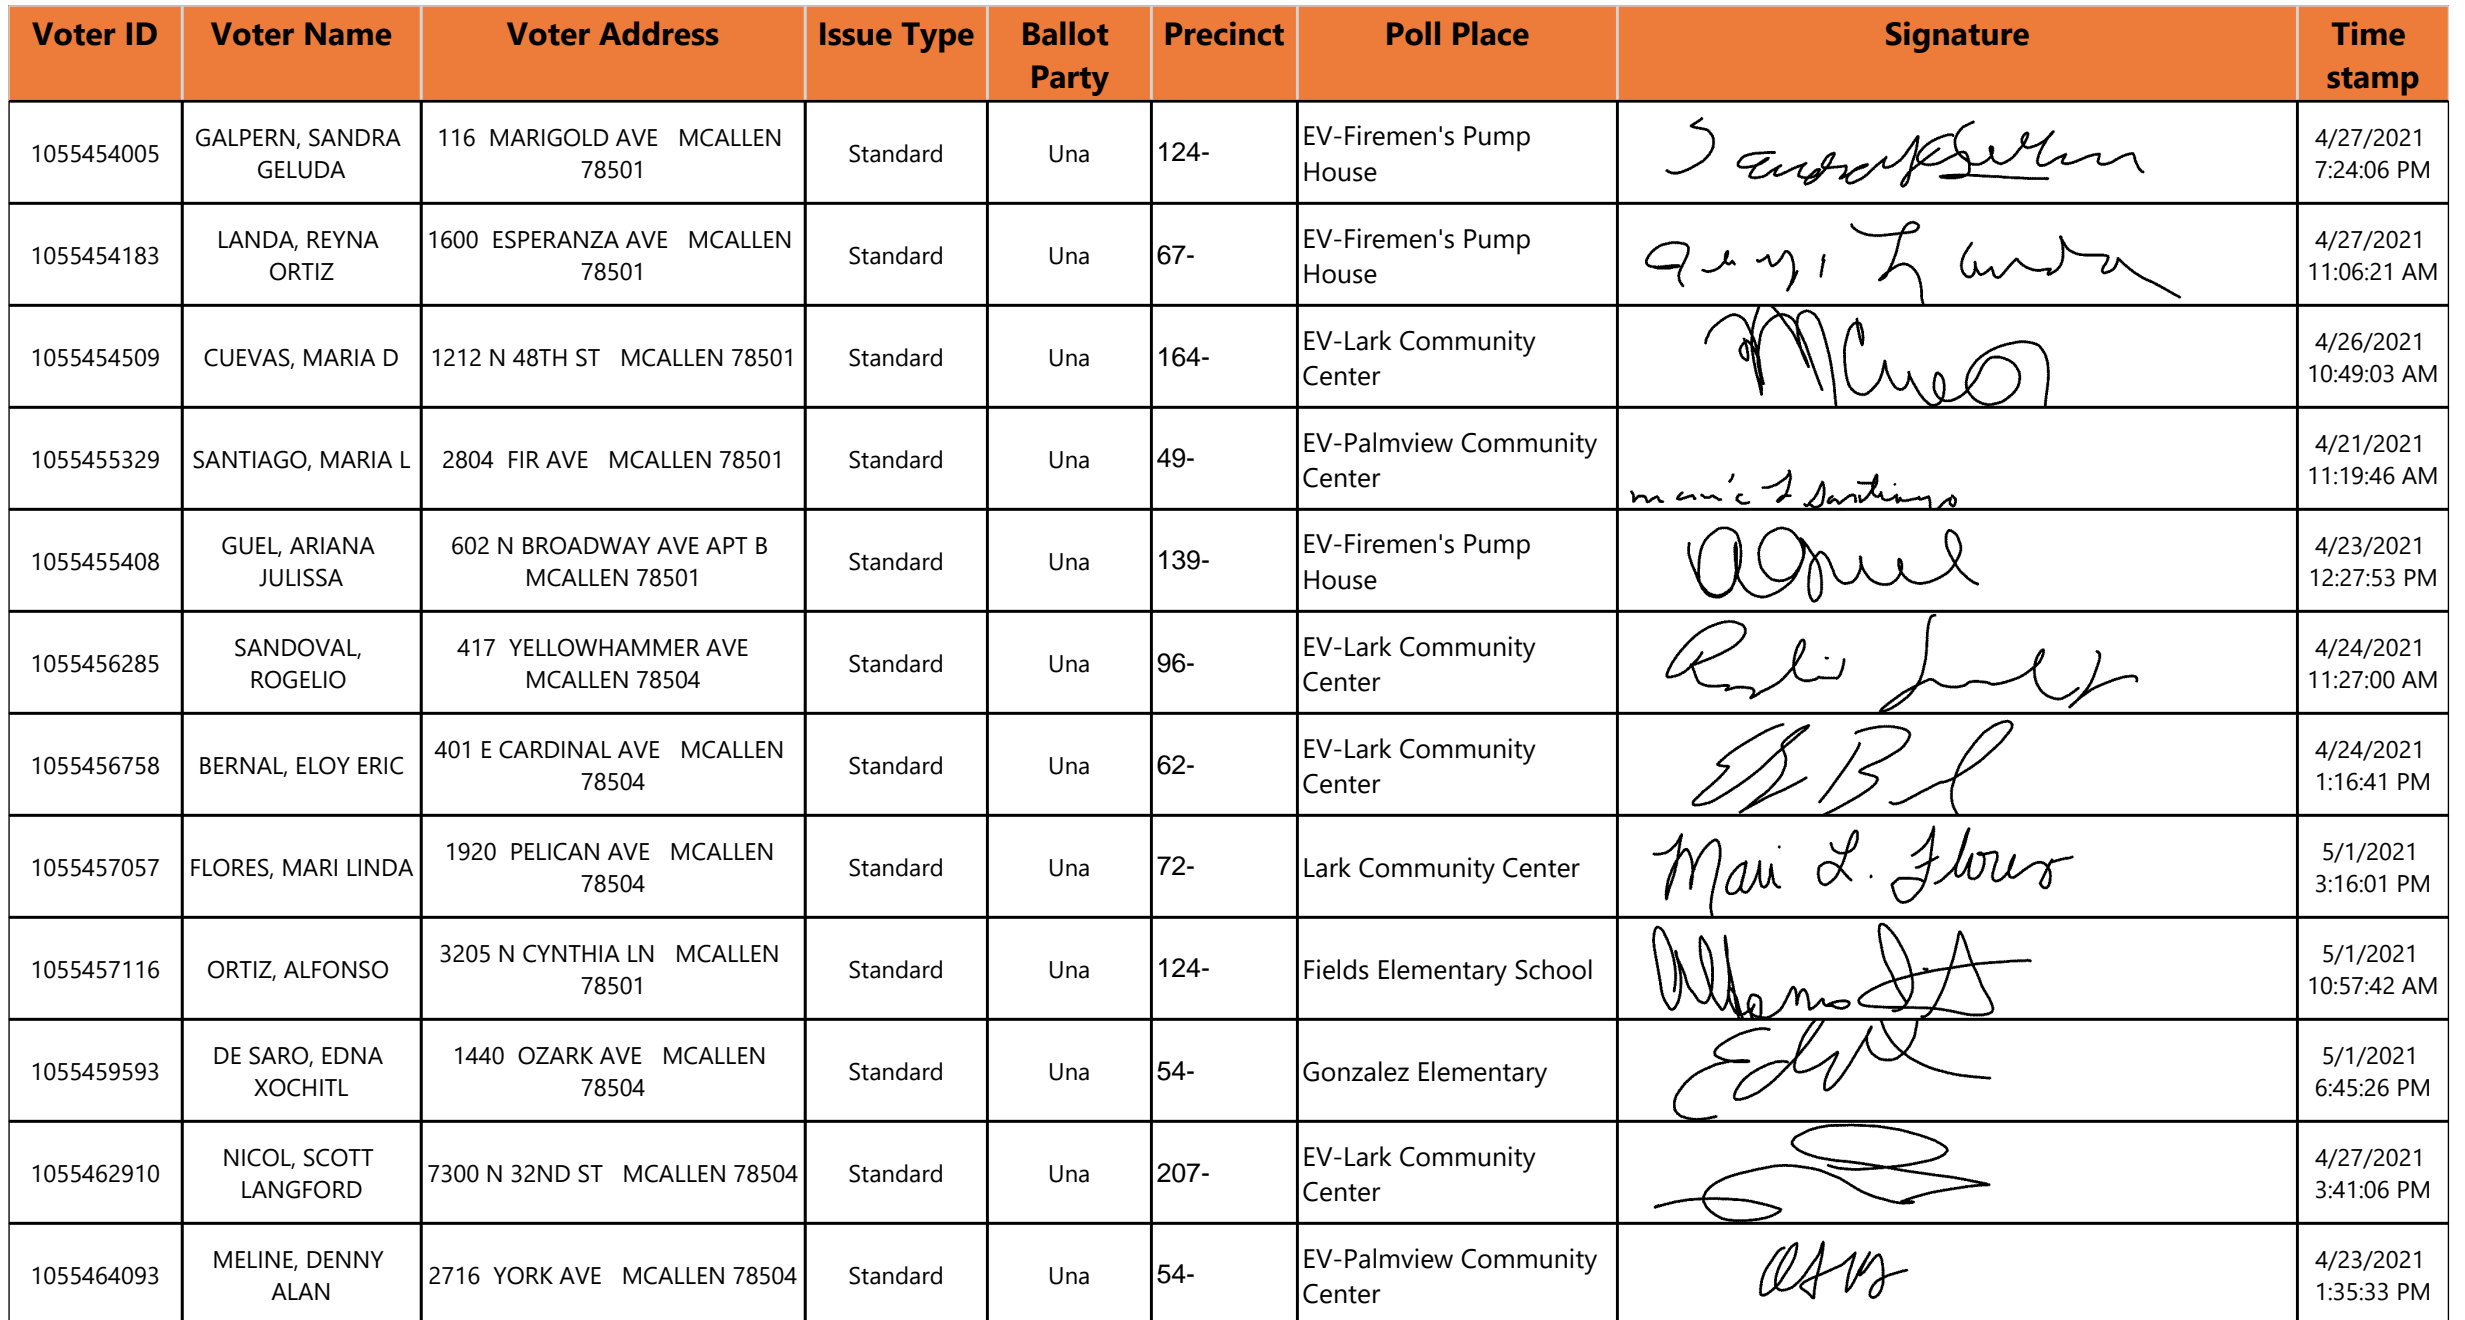 Voter ID Voter Name Voter Address Issue Type Ballot Party Precinct Poll Place Signature Time stamp
1055454005 GALPERN, SANDRA GELUDA 116 MARIGOLD AVE MCALLEN 78501 Standard Una 124- EV-Firemen's Pump House 4/27/2021 7:24:06 PM
1055454183 LANDA, REYNA ORTIZ 1600 ESPERANZA AVE MCALLEN 78501 Standard Una 67- EV-Firemen's Pump House 4/27/2021 11:06:21 AM
1055454509 CUEVAS, MARIA D 1212 N 48TH ST MCALLEN 78501 Standard Una 164- EV-Lark Community Center 4/26/2021 10:49:03 AM
1055455329 SANTIAGO, MARIA L 2804 FIR AVE MCALLEN 78501 Standard Una 49- EV-Palmview Community Center maria L Santiago 4/21/2021 11:19:46 AM
1055455408 GUEL, ARIANA JULISSA 602 N BROADWAY AVE APT B MCALLEN 78501 Standard Una 139- EV-Firemen's Pump House 4/23/2021 12:27:53 PM
1055456285 SANDOVAL, ROGELIO 417 YELLOWHAMMER AVE MCALLEN 78504 Standard Una 96- EV-Lark Community Center 4/24/2021 11:27:00 AM
1055456758 BERNAL, ELOY ERIC 401 E CARDINAL AVE MCALLEN 78504 Standard Una 62- EV-Lark Community Center 4/24/2021 1:16:41 PM
1055457057 FLORES, MARI LINDA 1920 PELICAN AVE MCALLEN 78504 Standard Una 72- Lark Community Center Mari L. Flores 5/1/2021 3:16:01 PM
1055457116 ORTIZ, ALFONSO 3205 N CYNTHIA LN MCALLEN 78501 Standard Una 124- Fields Elementary School 5/1/2021 10:57:42 AM
1055459593 DE SARO, EDNA XOCHITL 1440 OZARK AVE MCALLEN 78504 Standard Una 54- Gonzalez Elementary 5/1/2021 6:45:26 PM
1055462910 NICOL, SCOTT LANGFORD 7300 N 32ND ST MCALLEN 78504 Standard Una 207- EV-Lark Community Center 4/27/2021 3:41:06 PM
1055464093 MELINE, DENNY ALAN 2716 YORK AVE MCALLEN 78504 Standard Una 54- EV-Palmview Community Center 4/23/2021 1:35:33 PM